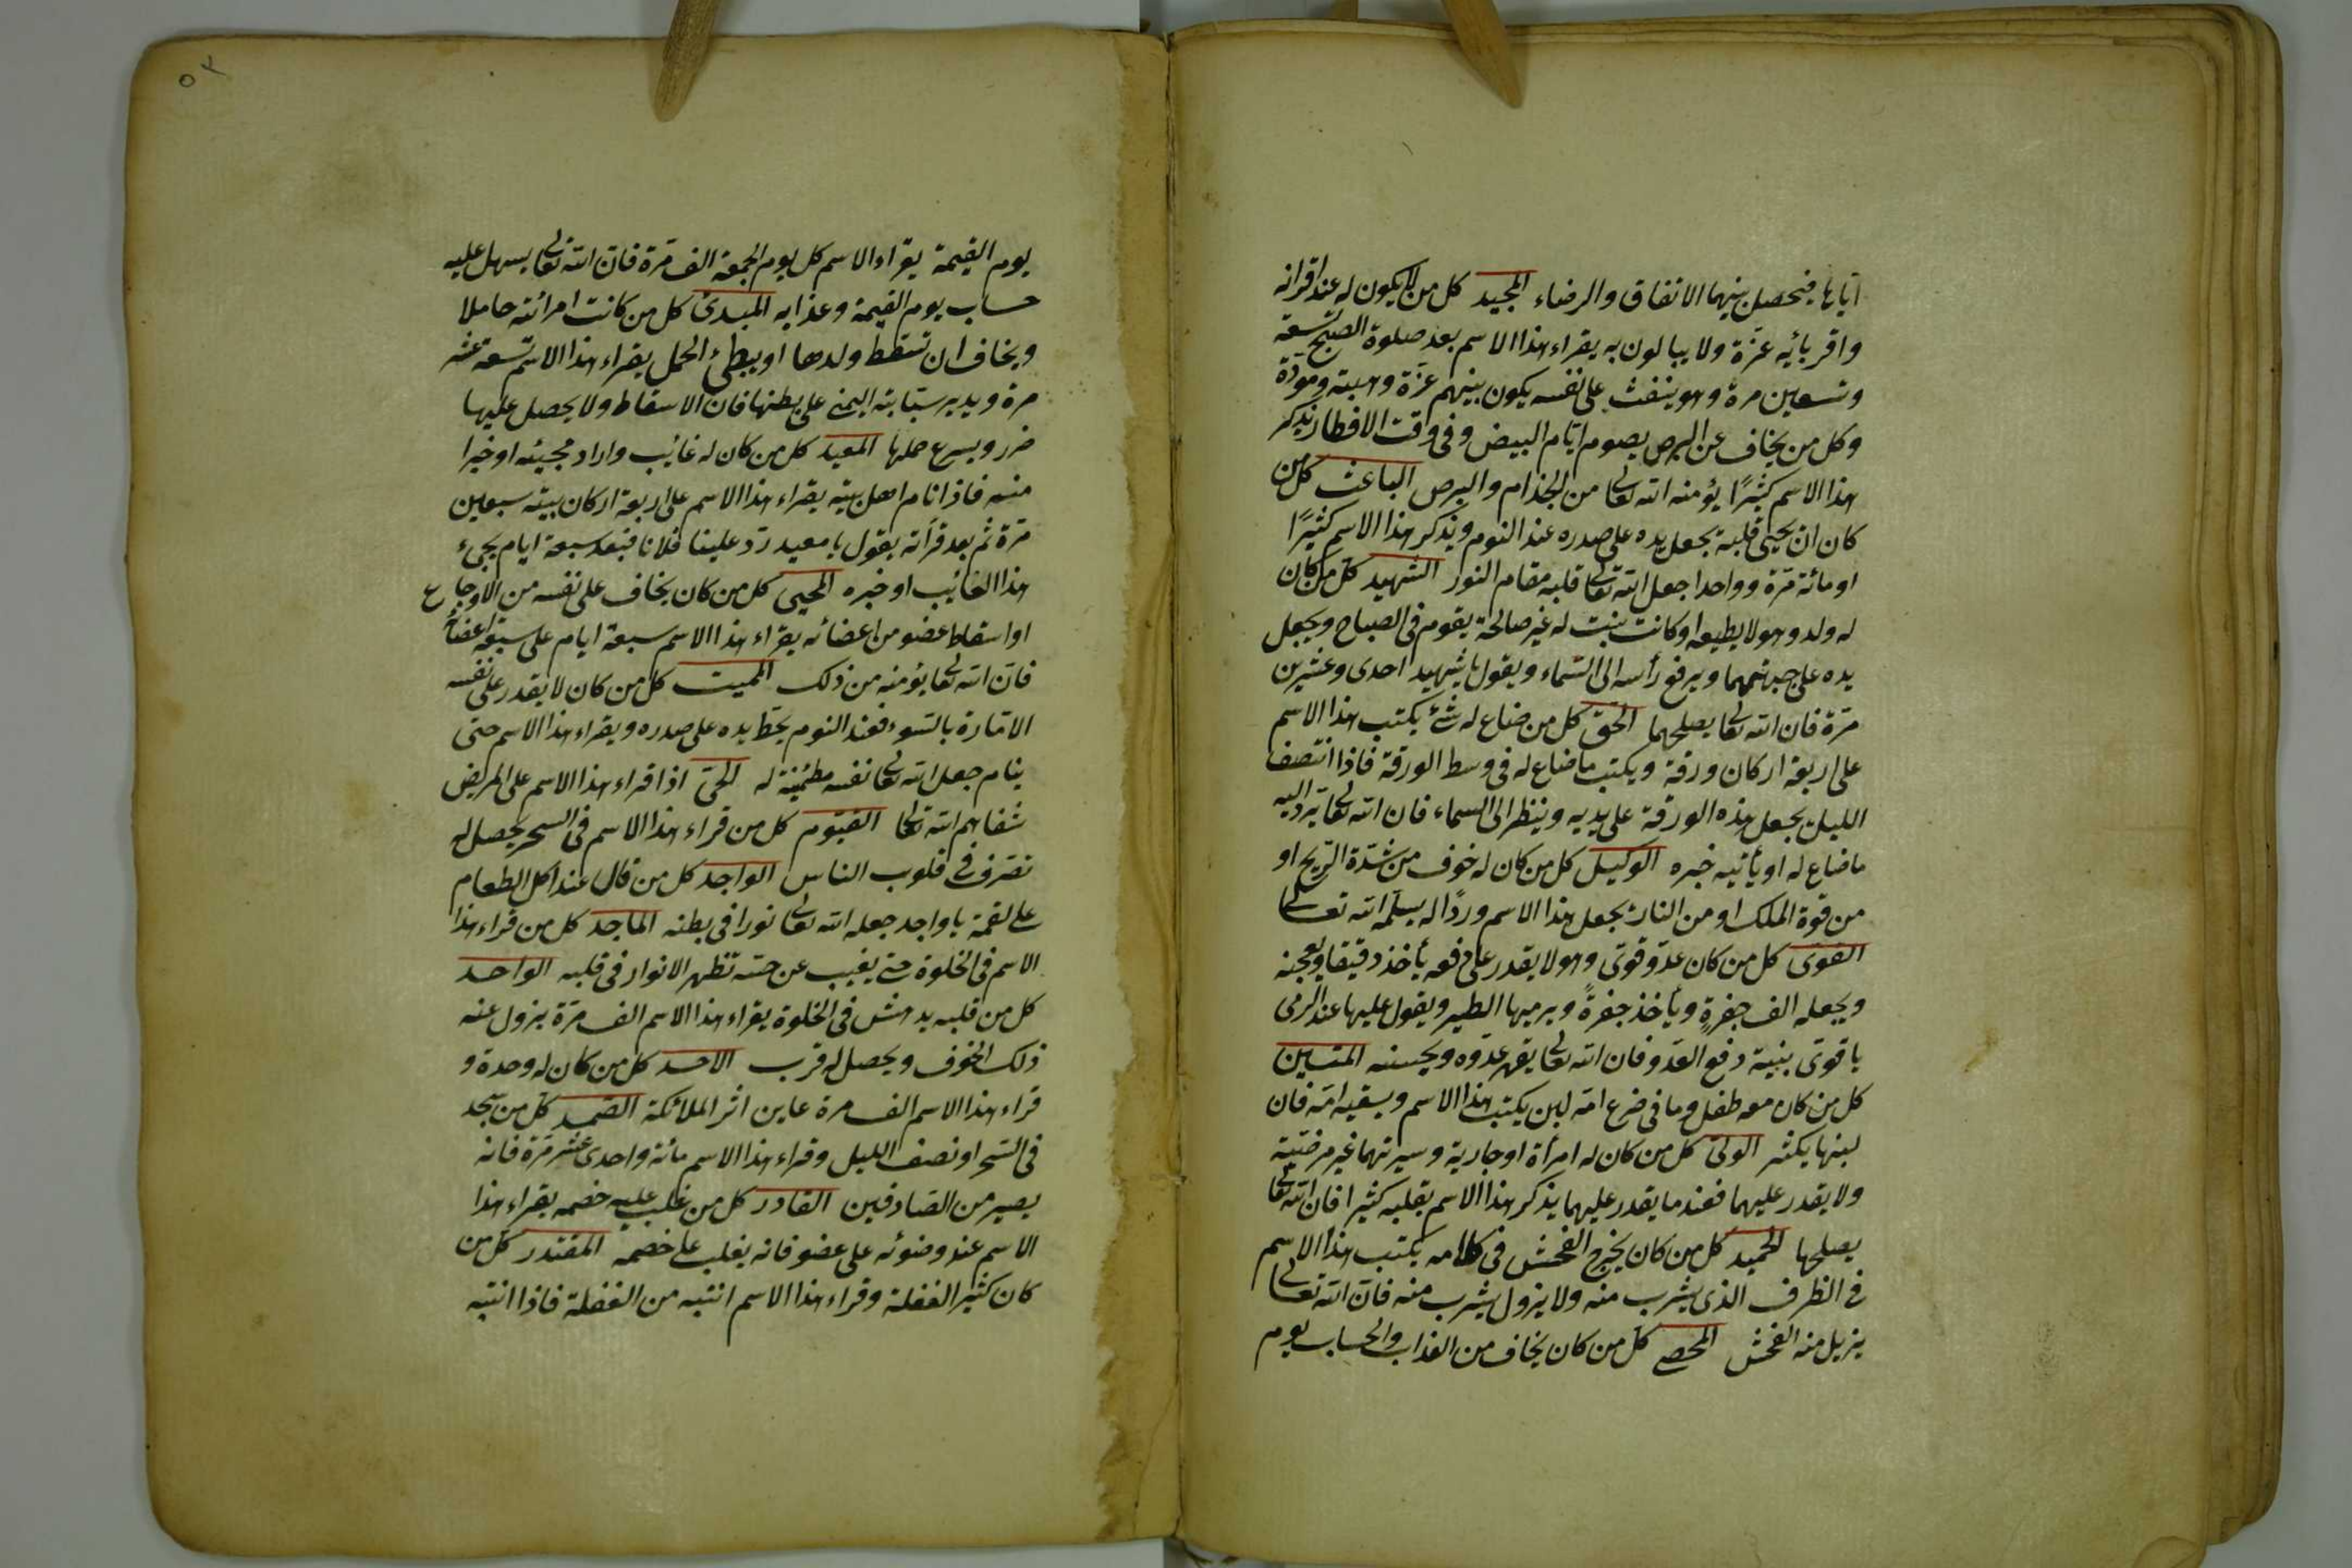 اياها فيحصل بينهما الاتفاق والرضاء المجيد كل من لا يكون له عند اقرانه
واقربائه عزة ولا يبالون به يقراء هذا الاسم بعد صلوة الصبح تسعة
وتسعين مرة وهو ينفث على نفسه يكون بينهم عزة وهيبة ومودة
وكل من يخاف عن البرص يصوم ايام البيض وفى وقت الافطار يذكر
هذا الاسم كثيرًا يؤمنه الله تعالى من الجذام والبرص الباعث كل من
كان ان يحيى قلبه يجعل يده على صدره عند النوم ويذكر هذا الاسم كثيرًا
او مائة مرة وواحدا جعل الله تعالى قلبه مقام النور الشهيد كل من كان
له ولد وهو لا يطيعه او كانت بنت له غير صالحة يقوم فى الصباح ويجعل
يده على جبهتهما ويرفع رأسه الى السماء ويقول يا شهيد احدى وعشرين
مرة فان الله تعالى يصلحهما الحق كل من ضاع له شئ يكتب هذا الاسم
على اربعة اركان ورقة ويكتب ما ضاع له فى وسط الورقة فاذا انتصف
الليل يجعل هذه الورقة على يديه وينظر الى السماء فان الله تعالى يرد اليه
ما ضاع له او يأتيه خبره الوكيل كل من كان له خوف من شدة الريح او
من قوة الملك او من النار يجعل هذا الاسم وردًا له يسلمه الله تعالى
القوى كل من كان عدو قوى وهو لا يقدر على دفعه يأخذ دقيقا ويعجنه
ويجعله الف جفرةٍ ويأخذ جفرةً ويرميها الطير ويقول عليها عند الرمى
يا قوى بنية دفع العدو فان الله تعالى يقهر عدوه ويحسنه المتين
كل من كان معه طفل وما فى ضرع امه لبن يكتب هذا الاسم ويسقيه امه فان
لبنها يكثر الولى كل من كان له امرأة او جارية وسيرتهما غير مرضية
ولا يقدر عليهما فعند ما يقدر عليهما يذكر هذا الاسم بقلبه كثيرا فان الله تعالى
يصلحها الحميد كل من كان يخرج الفحش فى كلامه يكتب هذا الاسم
فى الظرف الذى يشرب منه ولا يزول يشرب منه فان الله تعالى
يزيل منه الفحش المحصى كل من كان يخاف من العذاب والحساب يوم
٥٢
يوم القيمة يقراء الاسم كل يوم الجمعة الف مرة فان الله تعالى يسهل عليه
حساب يوم القيمة وعذابه المبدئ كل من كانت امرائته حاملا
ويخاف ان تسقط ولدها او يبطئ الحمل يقراء هذا الاسم تسعة عشر
مرة ويدير سبابته اليمنى على بطنها فان الاسقاط ولا يحصل عليها
ضرر ويسرع حملها المعيد كل من كان له غائب واراد مجيئه او خبرا
منه فاذا نام اهل بيته يقراء هذا الاسم على اربعة اركان بيته سبعين
مرة ثم بعد قرأته يقول يا معيد رد علينا فلانا فبعد سبعة ايام يجىء
هذا الغائب او خبره المحيى كل من كان يخاف على نفسه من الاوجاع
او اسقاط عضو من اعضائه يقراء هذا الاسم سبعة ايام على سبعة اعضاء
فان الله تعالى يؤمنه من ذلك المميت كل من كان لا يقدر على نفسه
الامارة بالسوء فعند النوم يحط يده على صدره ويقراء هذا الاسم حتى
ينام جعل الله تعالى نفسه مطمئنة له الحى اذا قراء هذا الاسم على المريض
شفاهم الله تعالى القيوم كل من قراء هذا الاسم فى السحر يحصل له
تصرف فى قلوب الناس الواجد كل من قال عند اكل الطعام
على لقمة يا واجد جعله الله تعالى نورا فى بطنه الماجد كل من قراء هذا
الاسم فى الخلوة حتى يغيب عن حسه تظهر الانوار فى قلبه الواحد
كل من قلبه يدهش فى الخلوة يقراء هذا الاسم الف مرة يزول عنه
ذلك الخوف ويحصل له قرب الاحد كل من كان له وحدة و
قراء هذا الاسم الف مرة عاين اثر الملائكة الصمد كل من سجد
فى السحر او نصف الليل وقراء هذا الاسم مائة واحدى عشر مرة فانه
يصير من الصادقين القادر كل من غلب عليه خصمه يقراء هذا
الاسم عند وضوئه على عضو فانه يغلب على خصمه المقتدر كل من
كان كثير الغفلة وقراء هذا الاسم انتبه من الغفلة فاذا انتبه